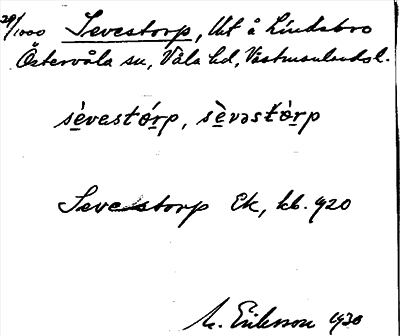 29/1000 Sevestorp, lht å Lindsbro
Östervåla sn, Våla hd, Västmanlands l.
sèvestórp, sèvəstórp
Sevestorp Ek, kb. 920
M. Eriksson 1930